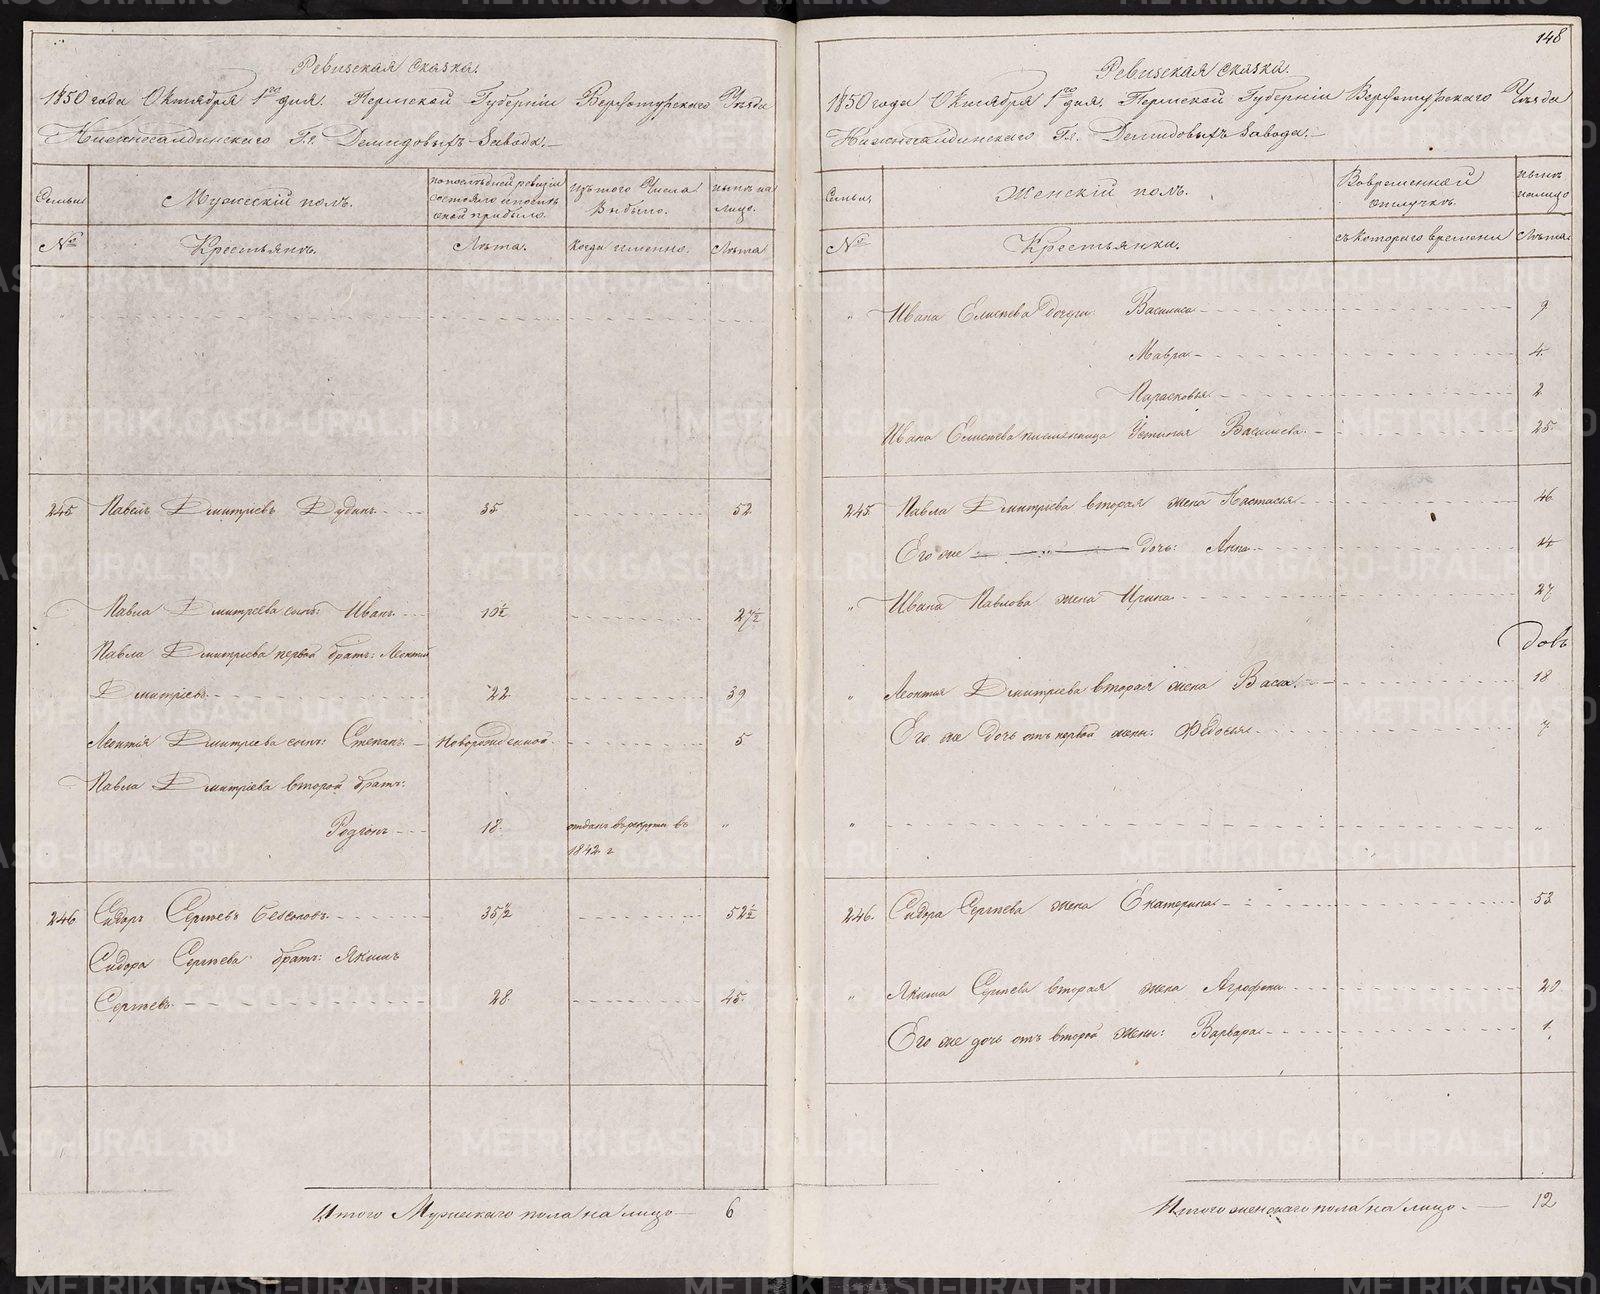 Ревизская сказка.
1850 года Октября 1го дня. Пермской Губерніи Верхотурскаго Уѣзда
Нижнесалдинскаго Гг. Демидовыхъ Завода.
Семьи
Мужескій полъ.
по послѣдней ревизіи
состояло и послѣ
оной прибыло.
Изъ того Числа
Выбыло.
нынѣ на
лицо.
№
Крестьянъ.
Лѣта.
Когда именно.
Лѣта
245 Павелъ Дмитріевъ Дудинъ 35 52
Павла Дмитріева сынъ: Иванъ. 10½ 27½
Павла Дмитріева первой братъ: Леонтий
Дмитріевъ 22 39
Леонтія Дмитріева сынъ: Степанъ. Новорожденной. 5
Павла Дмитріева второй братъ:
Родіонъ 18. отданъ въ рекруты въ "
1842 г
246 Сидоръ Сергѣевъ 35½ 52½
Сидора Сергѣева братъ: Якимъ
Сергѣевъ. 28 45.
Итого Мужескаго пола на лицо 6
148
Ревизская сказка.
1850 года Октября 1го дня. Пермской Губерніи Верхотурскаго Уѣзда
Нижнесалдинскаго Гг. Демидовыхъ Завода.
Семьи
Женскій полъ.
Вовременной
отлучкѣ.
нынѣ
налицо
№
Крестьянки.
съ котораго времени
Лѣта
" Ивана Елисѣева Дочери: Василиса 9
Мавра 4.
Парасковья 2
Ивана Елисѣева племянница Устинья Васильева. 25.
245 Павла Дмитріева вторая жена Настасья 46
Его же дочь: Анна 14
" Ивана Павлова жена Ирина 27
вдовъ
" Леонтья Дмитріева вторая жена Васса. 18
Его же дочь отъ первой жены: Федосья 7
" "
246. Сидора Сергѣева жена Екатерина 53
" Якима Сергѣева вторая жена Агрофена 20
Его же дочь отъ второй жены: Варвара 1.
Итого женскаго пола на лицо. 12
METRIKI.GASO-URAL.RU